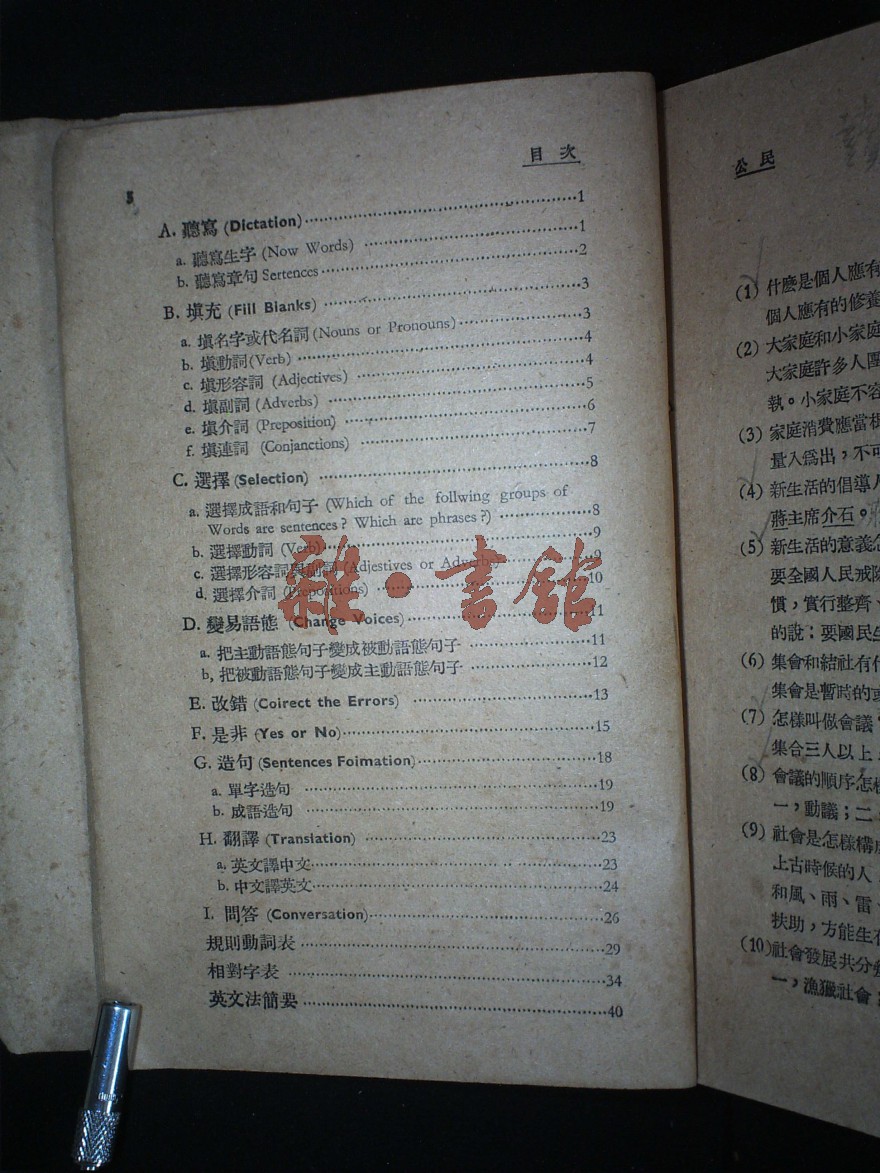 目次
5
A. 聽寫 (Dictation)……1
a. 聽寫生字 (Now Words) ……1
b. 聽寫章句 Sertences……2
B. 填充 (Fill Bianks) ……3
a. 填名字或代名詞 (Nouns or Pronouns)……3
b. 填動詞 (Verb) ……4
c. 填形容詞 (Adjectives) ……4
d. 填副詞 (Adverbs) ……5
e. 填介詞 (Preposition) ……6
f. 填連詞 (Conjanctions) ……7
C. 選擇 (Selection) ……8
a. 選擇成語和句子 (Which of the follwing groups of
Words are sentences? Which are phrases?) ……8
b. 選擇動詞 (Verb)……9
c. 選擇形容詞與副詞 (Adjestives or Adverbs)……9
d. 選擇介詞 (Prepositions) ……10
D. 變易語態 (Change Voices)……11
a. 把主動語態句子變成被動語態句子 ……11
b, 把被動語態句子變成主動語態句子 ……12
E. 改錯 (Coirect the Errors) ……13
F. 是非 (Yes or No)……15
G. 造句 (Sentences Foimation)……18
a. 單字造句 ……19
b. 成語造句 ……19
H. 翻譯 (Transiation) ……23
a. 英文譯中文……23
b. 中文譯英文……24
I. 問答 (Conversation)……26
規則動詞表 ……29
相對字表 ……34
英文法簡要 ……40
雜·書館
公民
(1) 什麼是個人應有
個人應有的修養
(2) 大家庭和小家庭
大家庭許多人團
執。小家庭不容
(3) 家庭消費應當根
量入爲出,不可
(4) 新生活的倡導人
蔣主席介石。
(5) 新生活的意義怎
要全國人民戒除
慣,實行整齊、
的說:要國民生
(6) 集會和結社有什
集會是暫時的或
(7) 怎樣叫做會議?
集合三人以上,
(8) 會議的順序怎樣
一,動議;二
(9) 社會是怎樣構成
上古時候的人,
和風、雨、雷、
扶助,方能生存
(10) 社會發展共分幾
一,漁獵社會;